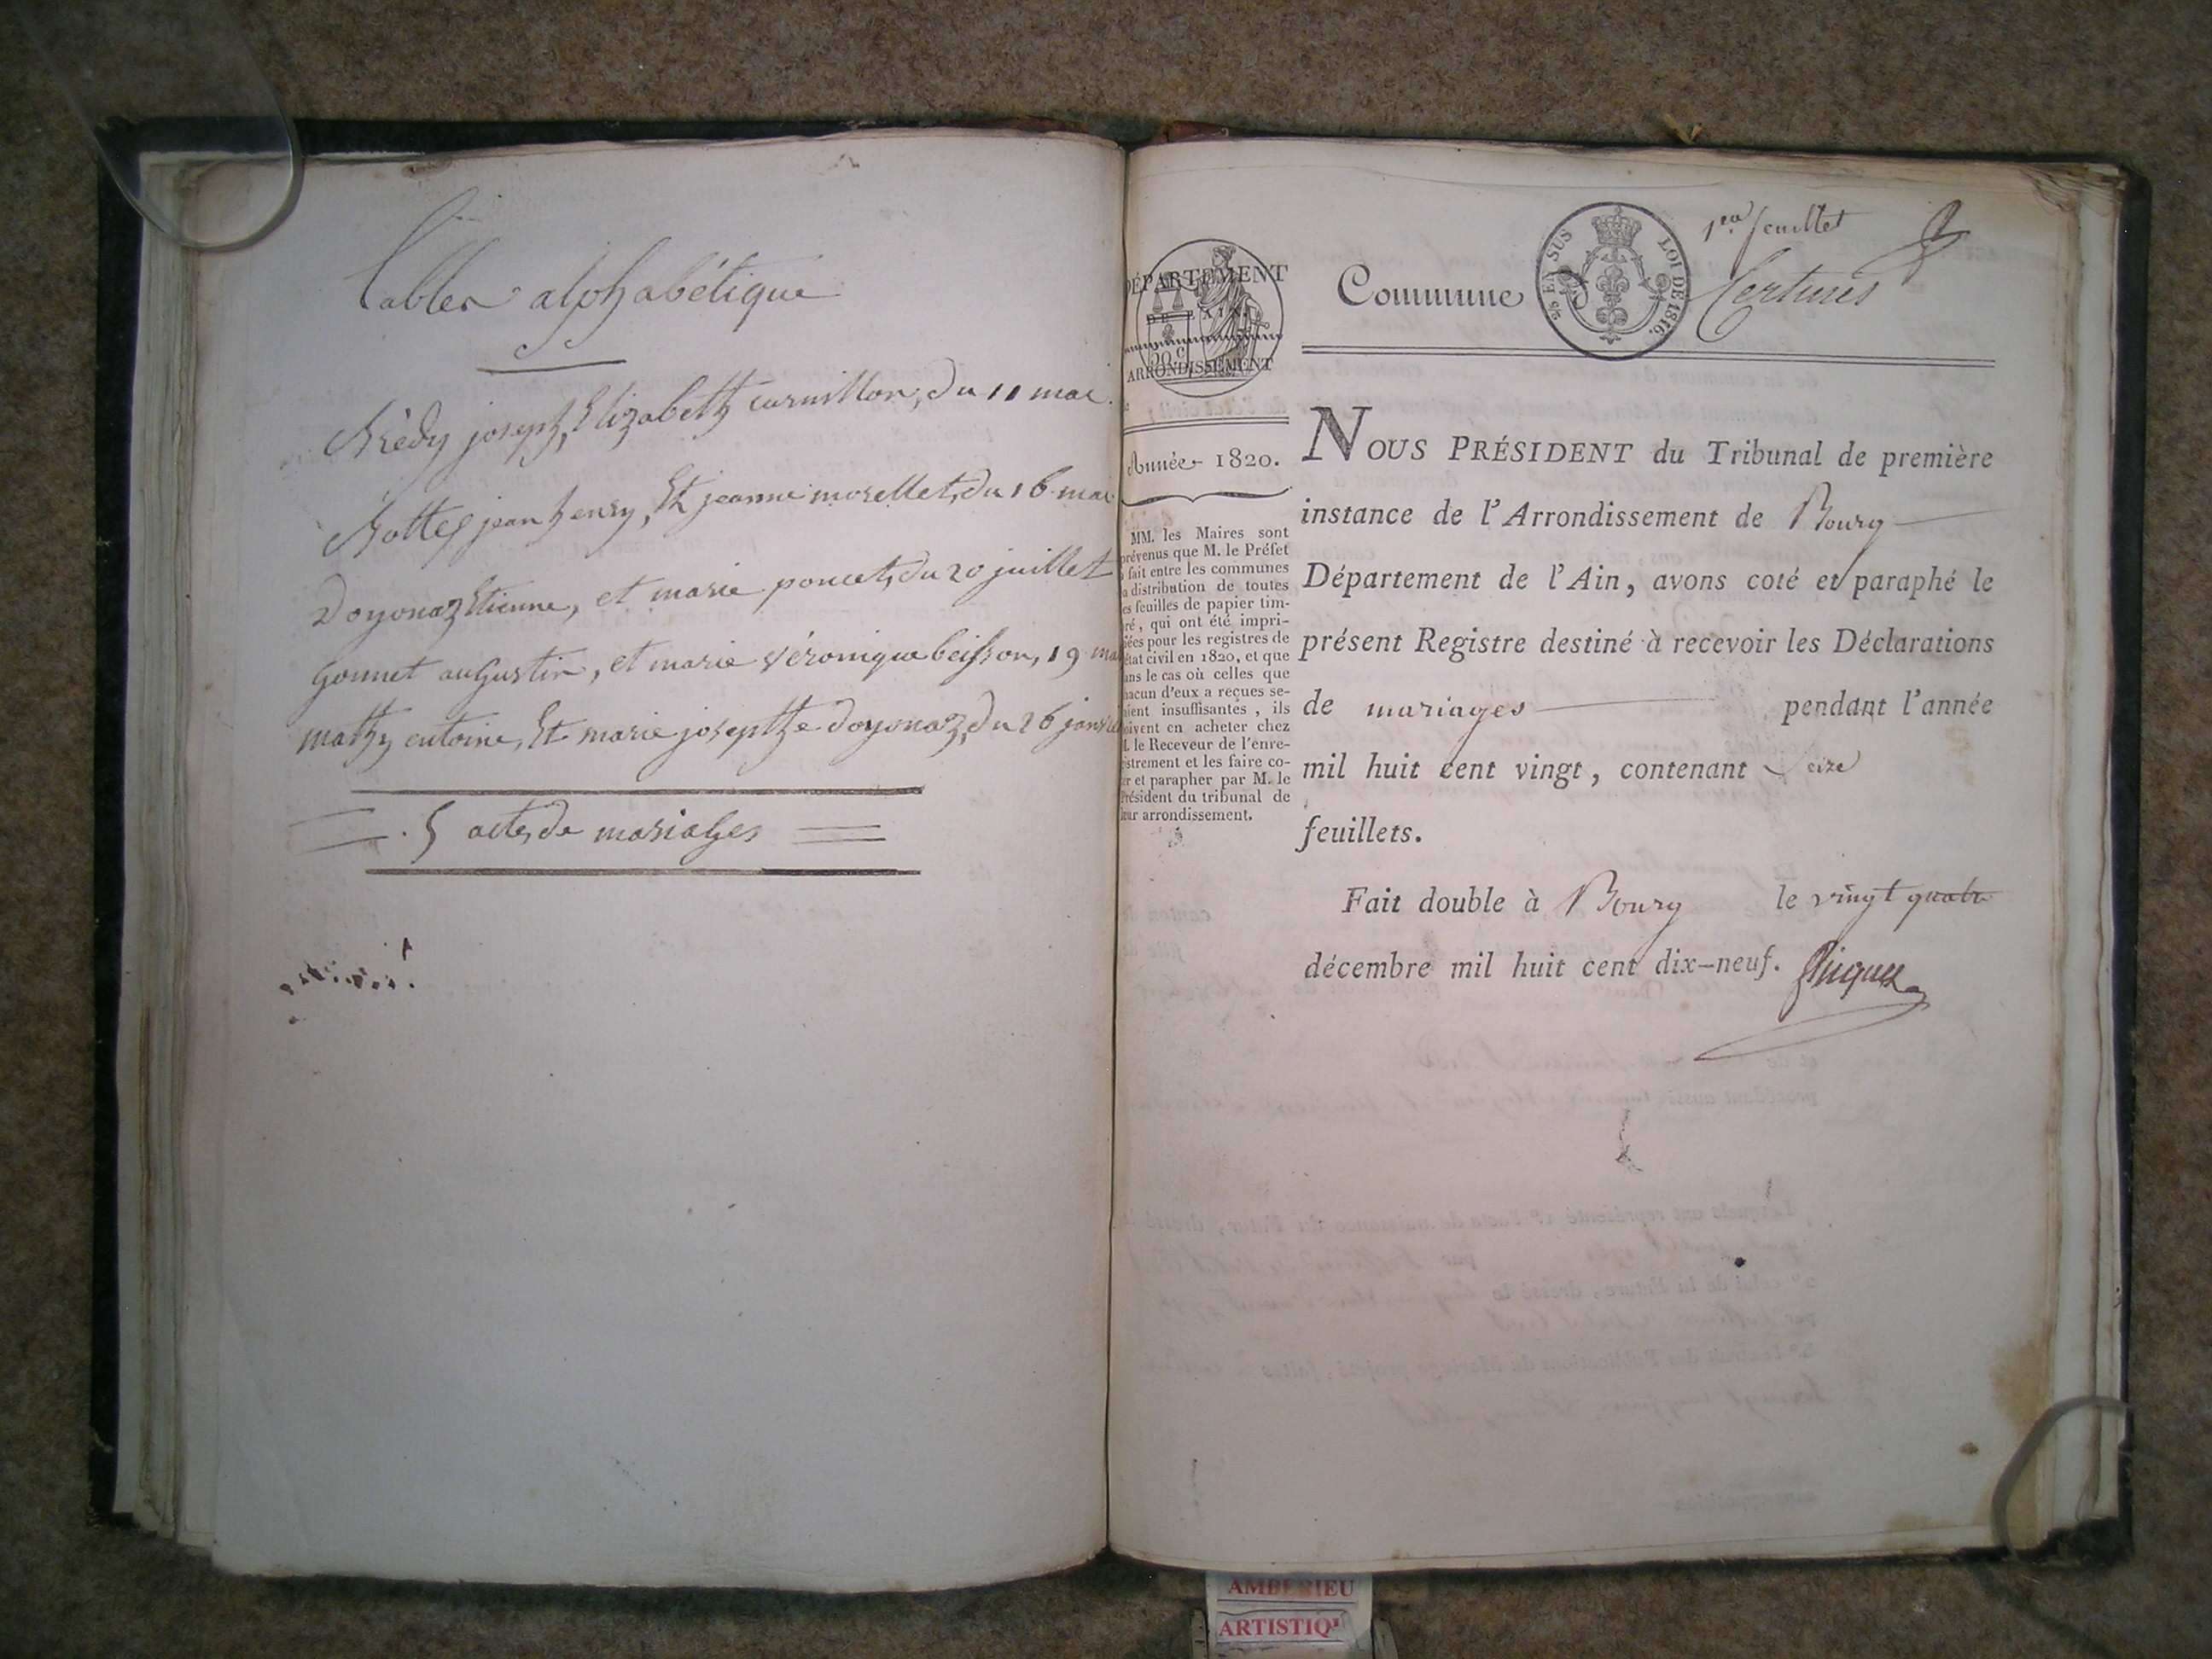 Tables alphabétique
Brédy joseph, Elizabeth curnillon, du 11 mai
Bottex jean henry, Et jeanne morellet, du 16 mai
Doyonaz Etienne, et marie poncet, du 20 juillet
gonnet augustin, et marie véronique beisson, 19 mai
mathy entoine, Et marie josepthe doyonaz, du 26 janvier
5 actes de mariages
DÉPARTEMENT
DE L'AIN.
20 c
ARRONDISSEMENT
Année 1820.
MM. les Maires sont
prévenus que M. le Préfet
fait entre les communes
la distribution de toutes
les feuilles de papier tim-
bré, qui ont été impri-
mées pour les registres de
état civil en 1820, et que
dans le cas où celles que
chacun d'eux a reçues se-
raient insuffisantes, ils
doivent en acheter chez
M. le Receveur de l'enre-
gistrement et les faire co-
ter et parapher par M. le
Président du tribunal de
leur arrondissement.
1er feuillet
Commune
EN SUS LOI DE 1816.
Certines
NOUS PRÉSIDENT du Tribunal de première
instance de l'Arrondissement de Bourg
Département de l'Ain, avons coté et paraphé le
présent Registre destiné à recevoir les Déclarations
de mariages pendant l'année
mil huit cent vingt, contenant Seize
feuillets.
Fait double à Bourg le vingt quatre
décembre mil huit cent dix-neuf.
AMBERIEU
ARTISTIQ